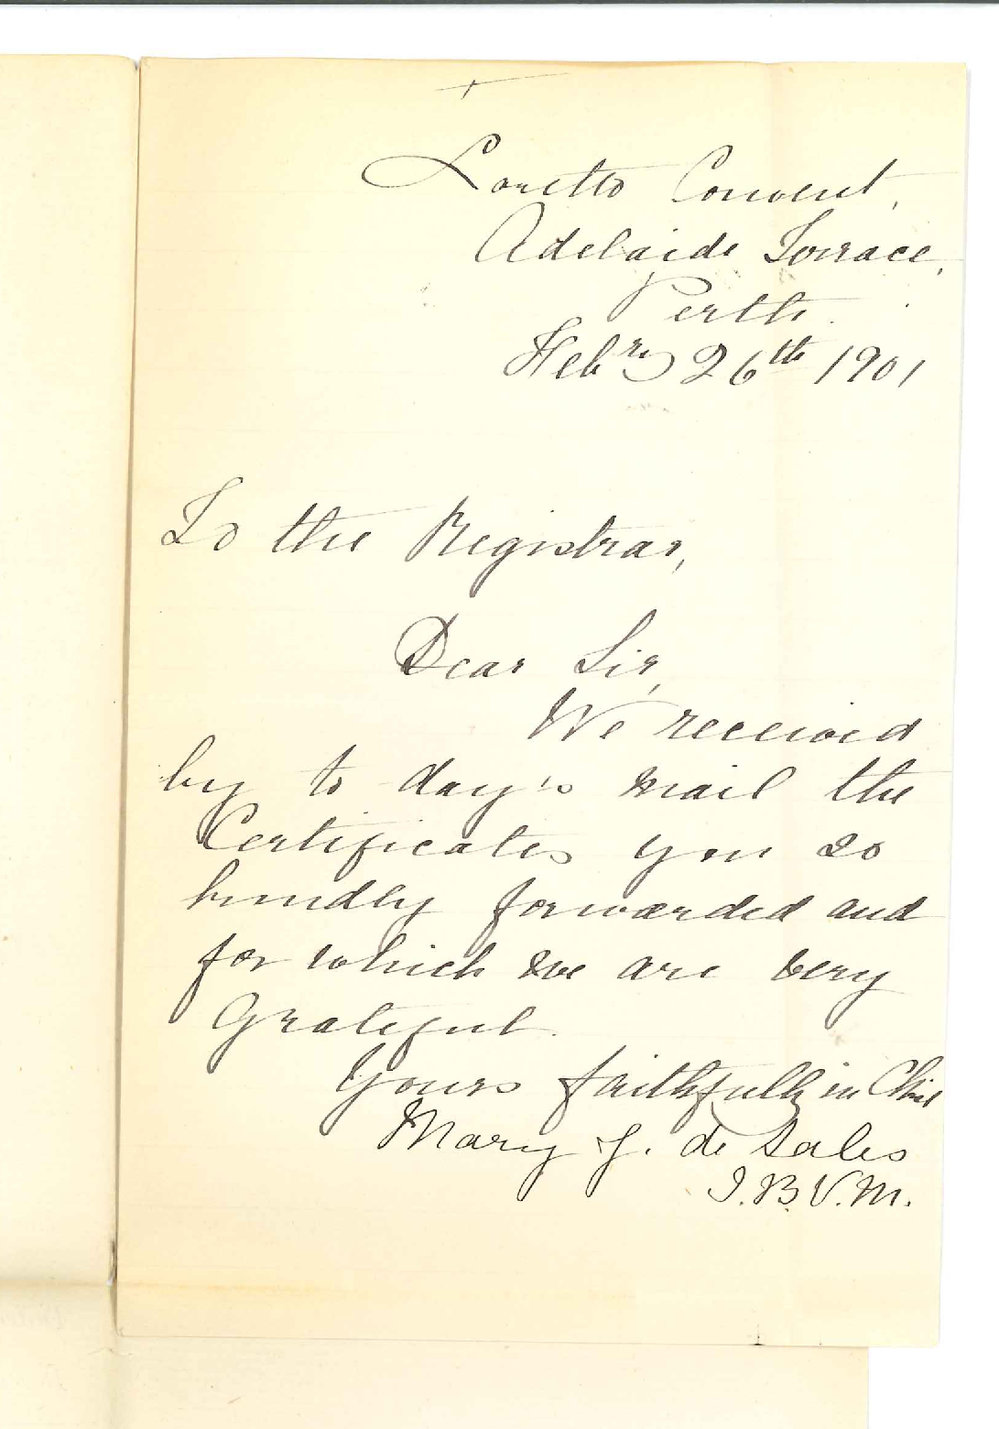 +
Loretto Convent,
Adelaide Terrace,
Perth.
Feb^ry 26^th 1901
To the Registrar,
Dear Sir,
We received
by to day's mail the
Certificates you so
kindly forwarded and
for which we are very
grateful.
Yours faithfully in Christ
Mary J. de Sales
I.B.V.M.